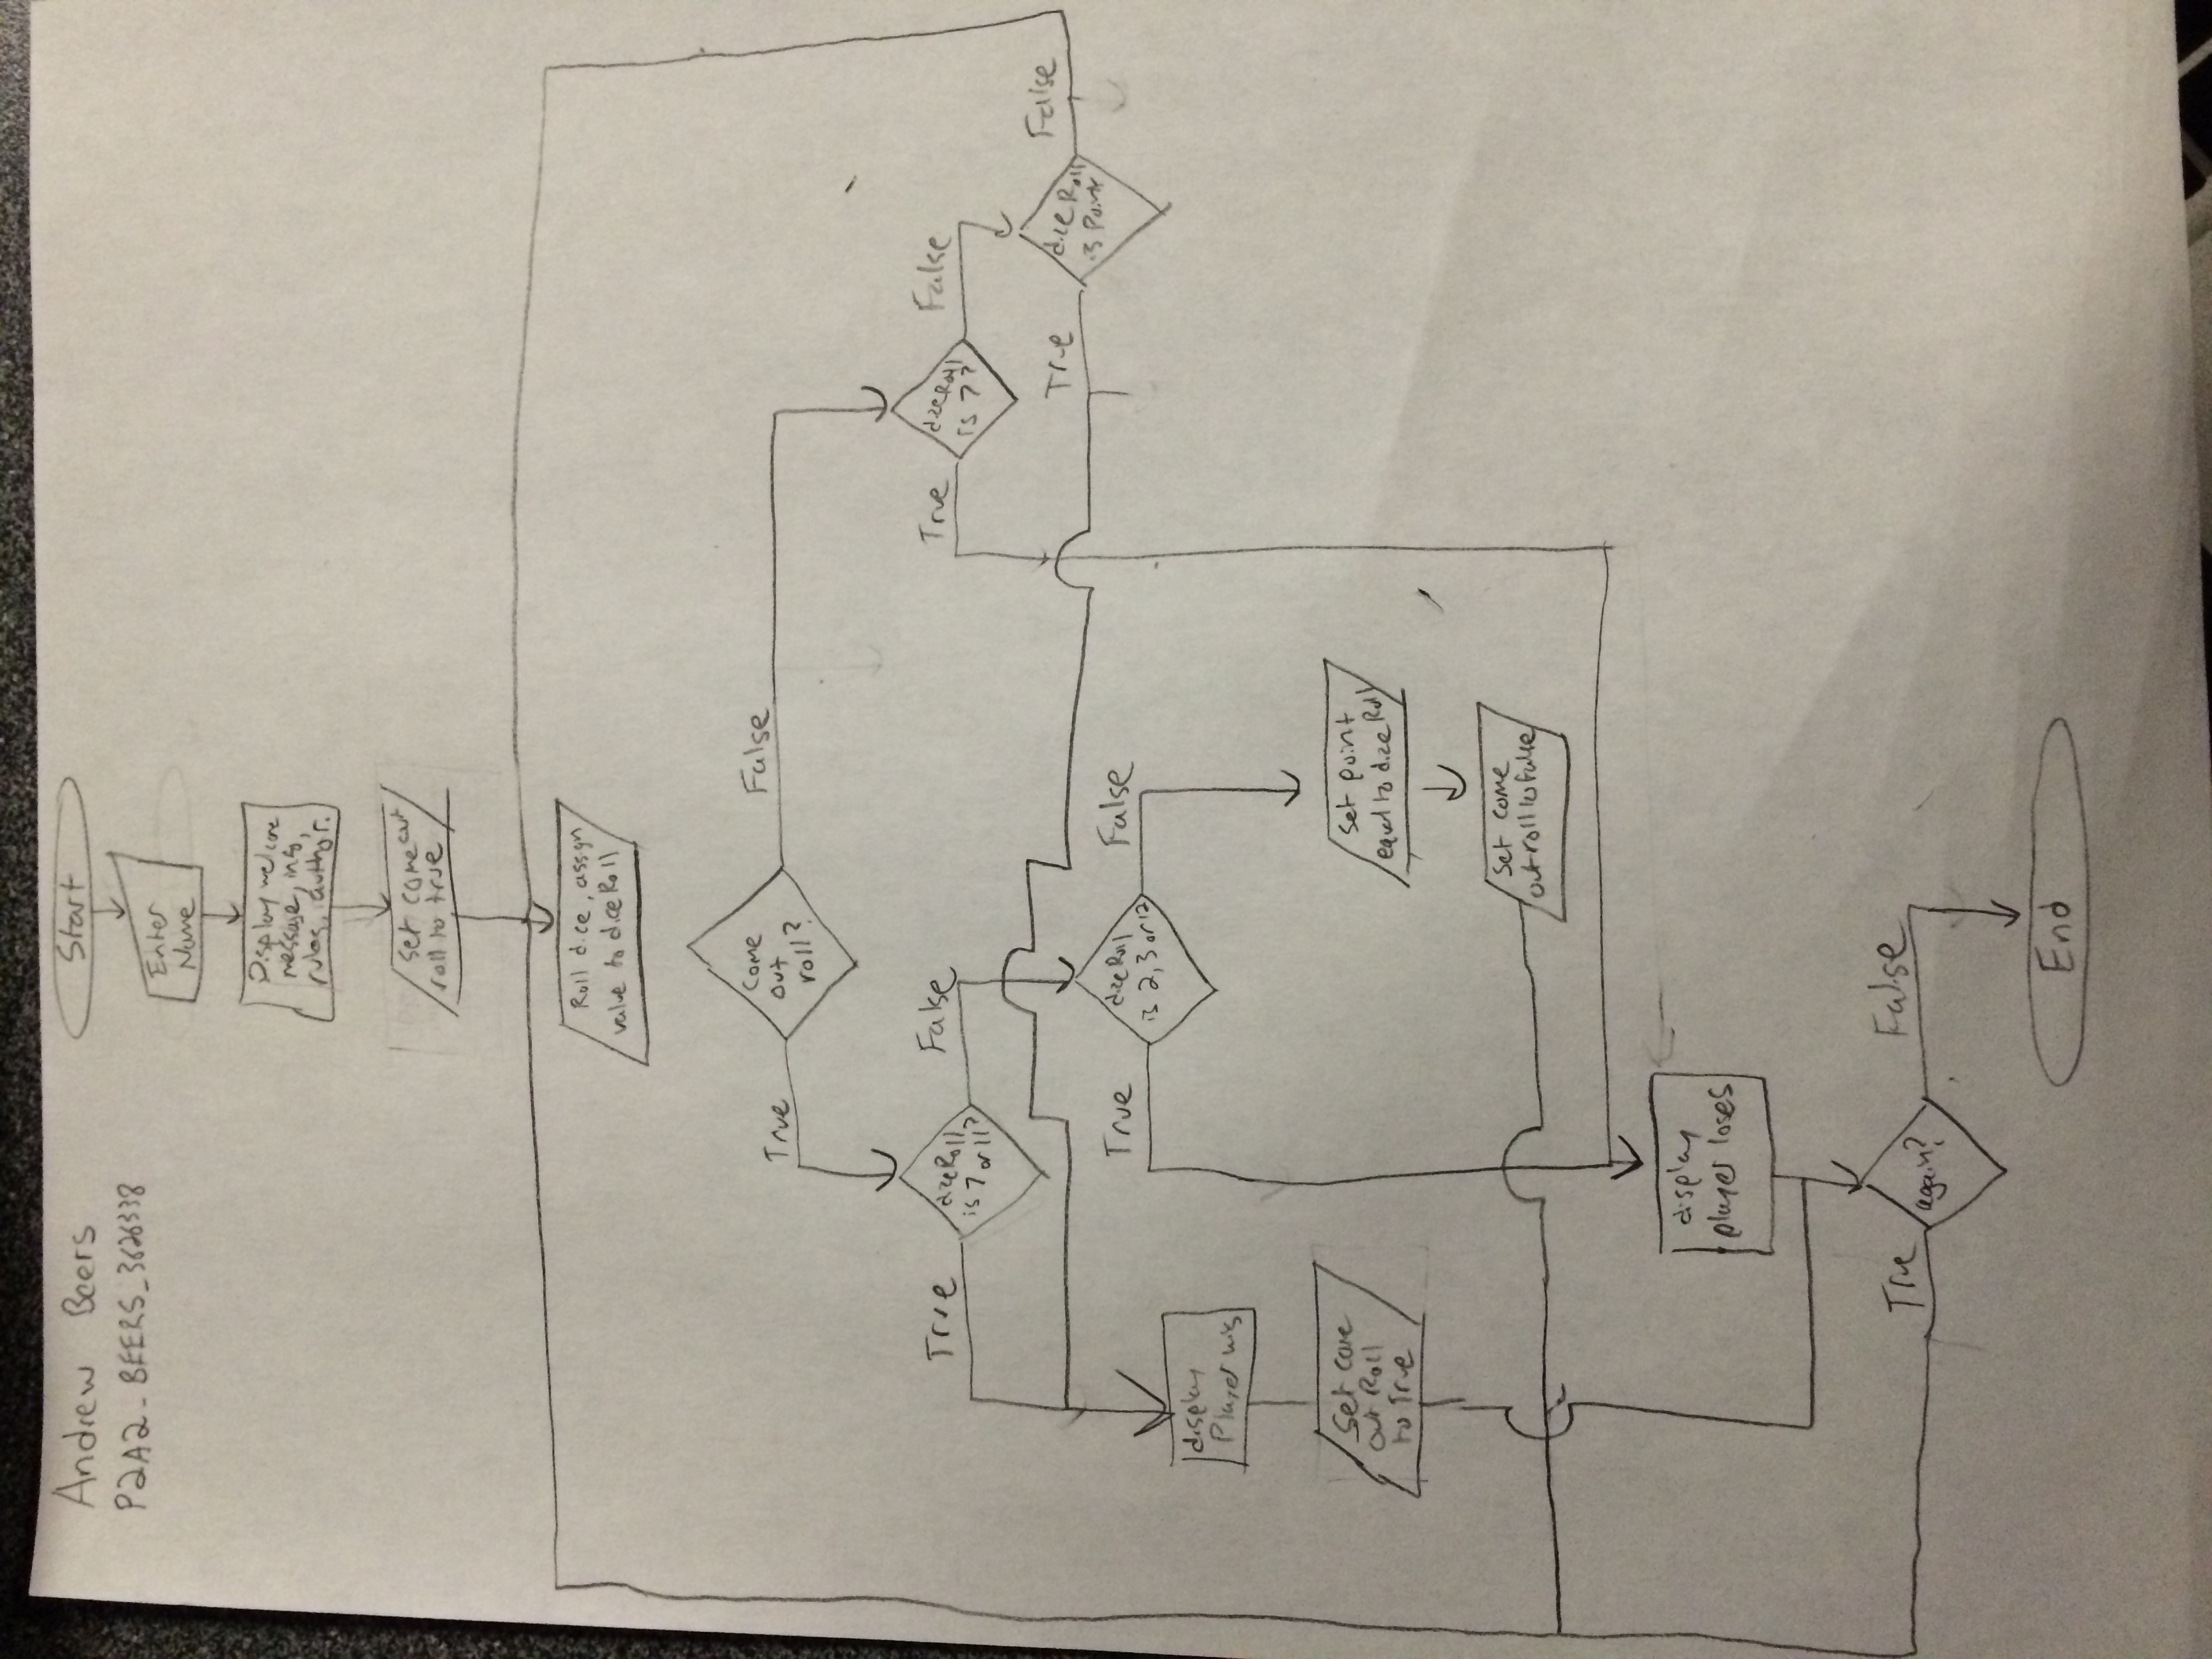 Andrew Beers
P2A2_BEERS_3626338
Start
Enter
Name
Display welcome
message, info,
rules, author.
Set come out
roll to true
Roll dice, assign
value to diceRoll
Come
out
roll?
True
False
diceRoll
is 7 or 11?
True
False
diceRoll
is 7?
True
False
diceRoll
is 2, 3 or 12
True
False
diceRoll
is Point
True
False
display
Player wins
Set come
out Roll
to True
Set point
equal to diceRoll
Set come
out roll to False
display
player loses
again?
True
False
End